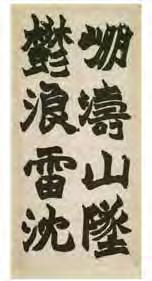 崩濤山墜
鬱浪雷沈